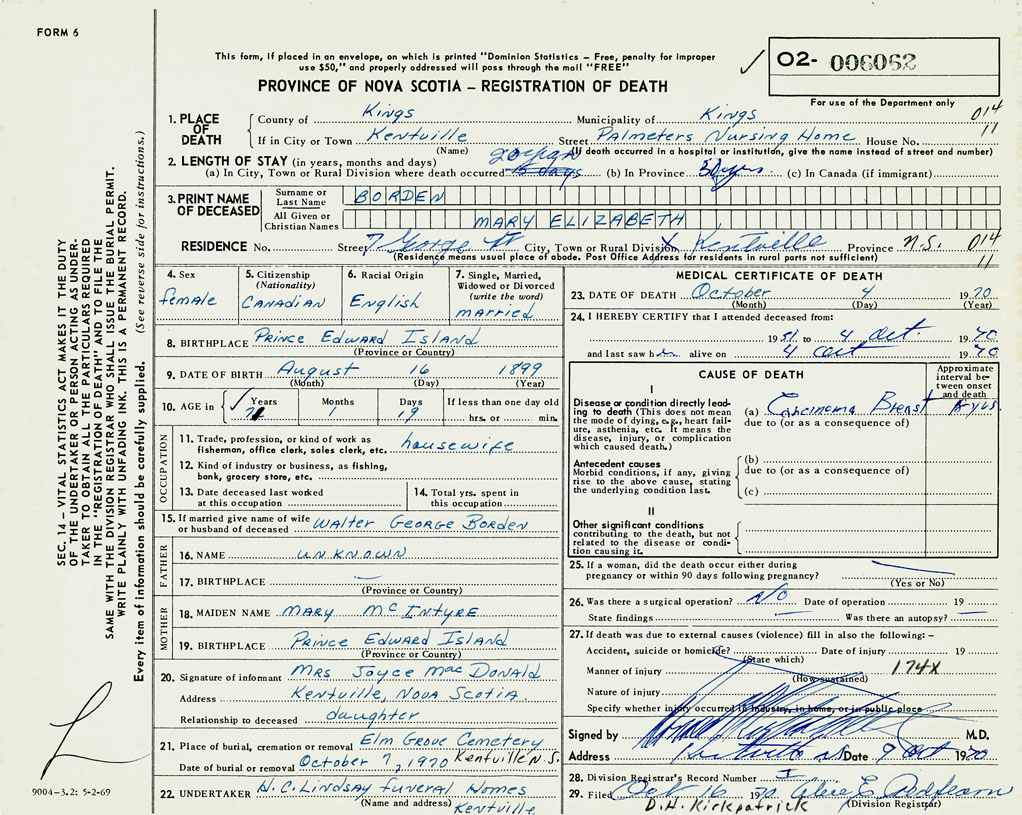 FORM 6
This form, if placed in an envelope, on which is printed "Dominion Statistics – Free, penalty for improper
use $50," and properly addressed will pass through the mail "FREE"
PROVINCE OF NOVA SCOTIA – REGISTRATION OF DEATH
02- 006062
For use of the Department only
014
11
1. PLACE OF DEATH
County of Kings Municipality of Kings
If in City or Town Kentville Street Palmeters Nursing Home House No.
(Name) (If death occurred in a hospital or institution, give the name instead of street and number)
2. LENGTH OF STAY (in years, months and days)
(a) In City, Town or Rural Division where death occurred (b) In Province 50 yrs (c) In Canada (if immigrant)
3. PRINT NAME OF DECEASED
Surname or Last Name BORDEN
All Given or Christian Names MARY ELIZABETH
RESIDENCE No. Street 7 George St City, Town or Rural Division Kentville Province N.S. 014
11
(Residence means usual place of abode. Post Office Address for residents in rural parts not sufficient)
4. Sex
female
5. Citizenship
(Nationality)
CANADIAN
6. Racial Origin
English
7. Single, Married,
Widowed or Divorced
(write the word)
married
8. BIRTHPLACE Prince Edward Island
(Province or Country)
9. DATE OF BIRTH August 16 1899
(Month) (Day) (Year)
10. AGE in
Years
Months
1
Days
19
If less than one day old
hrs. or min.
OCCUPATION
11. Trade, profession, or kind of work as
fisherman, office clerk, sales clerk, etc. housewife
12. Kind of industry or business, as fishing,
bank, grocery store, etc.
13. Date deceased last worked
at this occupation
14. Total yrs. spent in
this occupation
15. If married give name of wife
or husband of deceased Walter George Borden
FATHER
16. NAME UNKNOWN
17. BIRTHPLACE —
(Province or Country)
MOTHER
18. MAIDEN NAME MARY McINTYRE
19. BIRTHPLACE Prince Edward Island
(Province or Country)
20. Signature of informant Mrs Joyce MacDonald
Address Kentville, Nova Scotia
Relationship to deceased daughter
21. Place of burial, cremation or removal Elm Grove Cemetery
Date of burial or removal October 7, 1970 Kentville N.S.
22. UNDERTAKER H.C. Lindsay Funeral Homes
(Name and address) Kentville
MEDICAL CERTIFICATE OF DEATH
23. DATE OF DEATH October 4 1970
(Month) (Day) (Year)
24. I HEREBY CERTIFY that I attended deceased from:
1951 to 4 Oct. 1970
and last saw her alive on 4 Oct 1970
CAUSE OF DEATH
Approximate
interval be-
tween onset
and death
I
Disease or condition directly lead-
ing to death (This does not mean
the mode of dying, e.g., heart fail-
ure, asthenia, etc. It means the
disease, injury, or complication
which caused death.)
(a) Carcinoma Breast
due to (or as a consequence of)
Antecedent causes
Morbid conditions, if any, giving
rise to the above cause, stating
the underlying condition last.
(b)
due to (or as a consequence of)
(c)
II
Other significant conditions
contributing to the death, but not
related to the disease or condi-
tion causing it.
25. If a woman, did the death occur either during
pregnancy or within 90 days following pregnancy?
(Yes or No)
26. Was there a surgical operation? NO Date of operation 19
State findings Was there an autopsy?
27. If death was due to external causes (violence) fill in also the following: –
Accident, suicide or homicide? Date of injury 19
(State which)
Manner of injury 174X
(How sustained)
Nature of injury
Specify whether injury occurred in industry, in home, or in public place
Signed by M.D.
Address Kentville NS Date 9 Oct 1970
28. Division Registrar's Record Number
29. Filed Oct 16 1970
D.H. Kirkpatrick (Division Registrar)
SEC. 14 – VITAL STATISTICS ACT MAKES IT THE DUTY
OF THE UNDERTAKER OR PERSON ACTING AS UNDER-
TAKER TO OBTAIN ALL THE PARTICULARS REQUIRED
IN THE "REGISTRATION OF DEATH" AND TO FILE THE
SAME WITH THE DIVISION REGISTRAR WHO SHALL ISSUE THE BURIAL PERMIT.
WRITE PLAINLY WITH UNFADING INK. THIS IS A PERMANENT RECORD.
Every item of information should be carefully supplied. (See reverse side for instructions.)
9004-3.2: 5-2-69